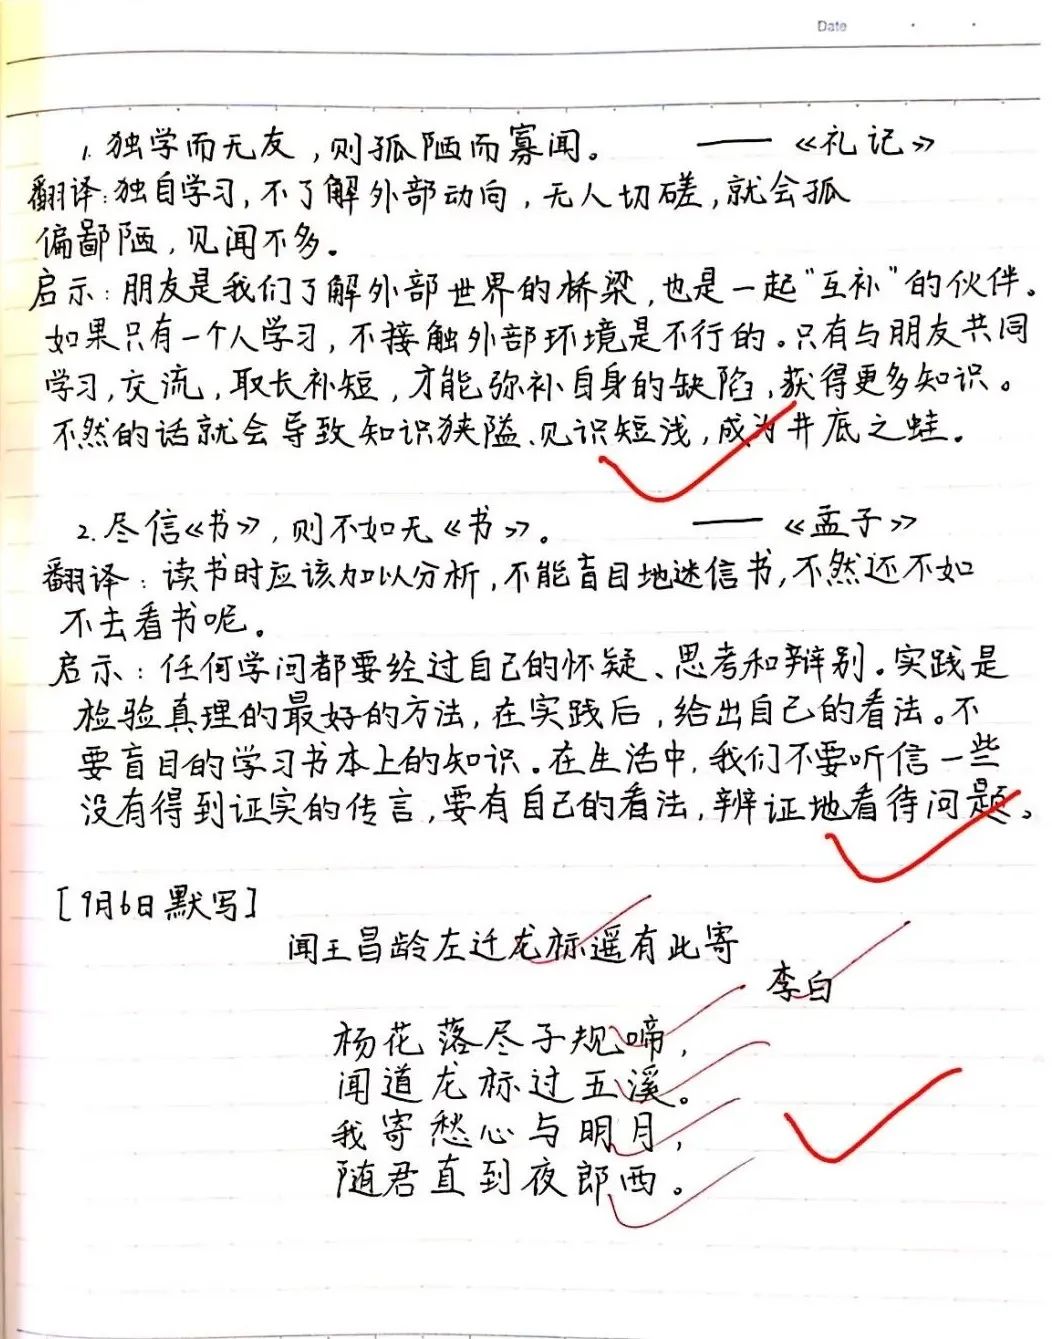 Date
1. 独学而无友,则孤陋而寡闻。 ——《礼记》
翻译:独自学习,不了解外部动向,无人切磋,就会孤
偏鄙陋,见闻不多。
启示:朋友是我们了解外部世界的桥梁,也是一起“互补”的伙伴。
如果只有一个人学习,不接触外部环境是不行的。只有与朋友共同
学习,交流,取长补短,才能弥补自身的缺陷,获得更多知识。
不然的话就会导致知识狭隘、见识短浅,成为井底之蛙。
2. 尽信《书》,则不如无《书》。 ——《孟子》
翻译:读书时应该加以分析,不能盲目地迷信书,不然还不如
不去看书呢。
启示:任何学问都要经过自己的怀疑、思考和辩别。实践是
检验真理的最好的方法,在实践后,给出自己的看法。不
要盲目的学习书本上的知识。在生活中,我们不要听信一些
没有得到证实的传言,要有自己的看法,辨证地看待问题。
[9月6日默写]
闻王昌龄左迁龙标遥有此寄
李白
杨花落尽子规啼,
闻道龙标过五溪。
我寄愁心与明月,
随君直到夜郎西。